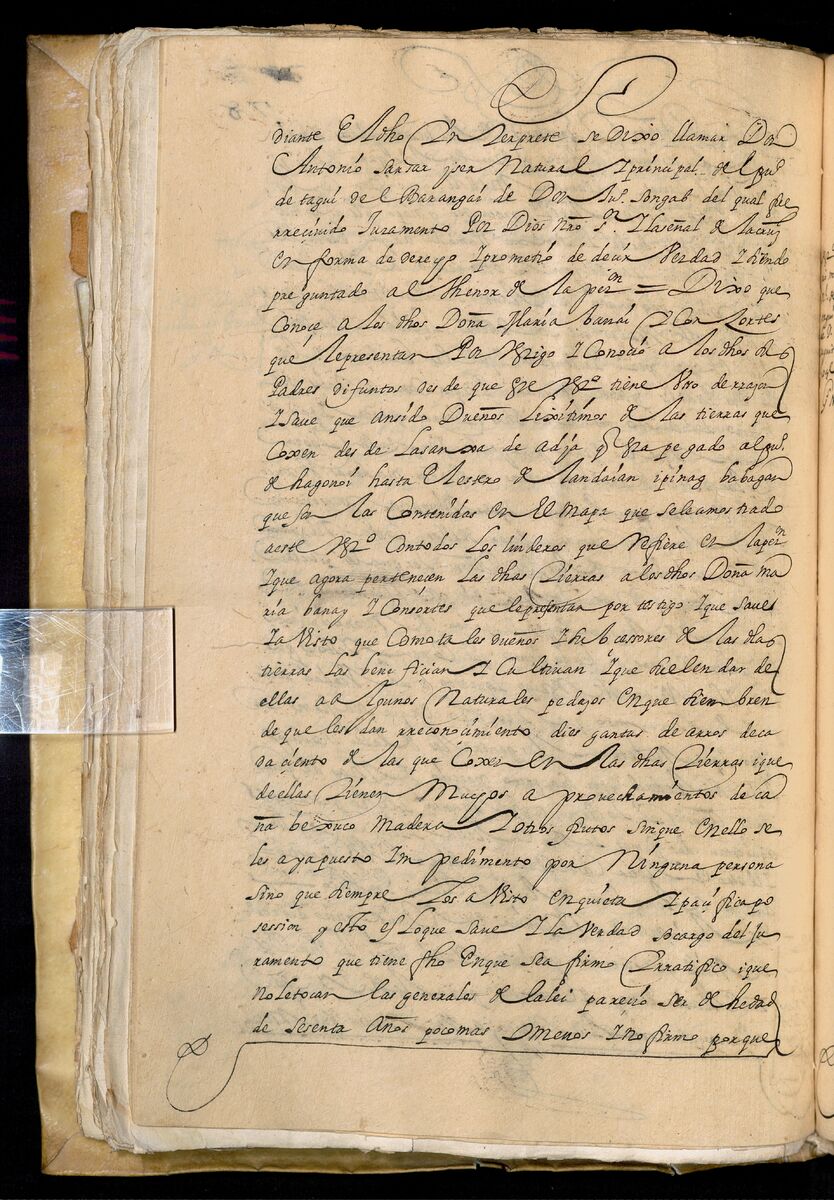 diante El dho Ynterprete se dixo llamar Don
Antonio sarsar y ser Natural I principal del pu.o
de tagui del Barangai de Don Ju.o songab del qual fue
rrecivido Juramento Por Dios Nro S.r I laseñal de lacruz
en forma de dereyo I prometio de decir Verdad I siendo
preguntado al thenor de la pe.on = Dixo que
Conoce a los dhos Doña Maria banai y Consortes
que lepresentan Por testigo I Conocio a los dhos
Padres difuntos desde que este tiene Uso de rrazon
I save que ansido Dueños Lixitimos de las tierras que
Coxen desde Lasanxa de adja pegado al pu.o
de hagonoi hasta el estero de landaian ipinag babagan
que son las Contenidas en El Mapa que seleamostrado
aeste Contodos Los linderos que refiere en lape.on
I que agora pertenecen Las dhas tierras alosdhos Doña ma
ria banay I Consortes que lepresentan por testigo I que save
I a Visto que Como tales dueños I subcesores de las dhas
tierras las benefician I Cultivan I que suelen dar de
ellas a algunos Naturales pedaços enque siembren
de que les dan rreconocimiento dies gantas de arros deca
da çiento de las que Coxen en las dhas tierras ique
deellas tienen Muyos aprovechamientos de ca
ña bexuco madera I otros frutos sinque enello se
les ayapuesto Impedimento por Ninguna persona
sino que siempre Los a Visto enquieta I pacificapo
session y esto es loque save I la Verdad socargo del ju
ramento que tiene fho Enque seafirmo Yrratifico ique
noletocan las generales de laley parecio ser de hedad
de sesenta Años pocomas Omenos I no firmo porque